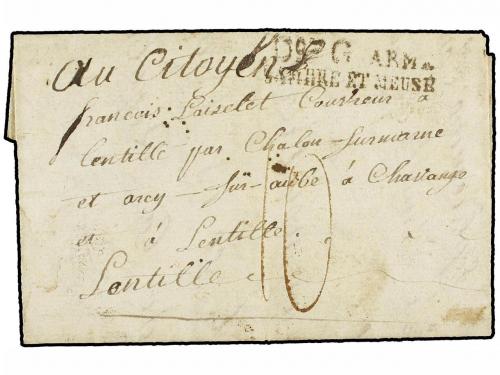 Don G ARM.
SAMBRE ET MEUSE
Au Citoyen
francois Loiselet Couvreur à
Lentille par Chalon-surmarne
et arcy-sur-aube à Chavange
et à Lentille.
Lentille
10